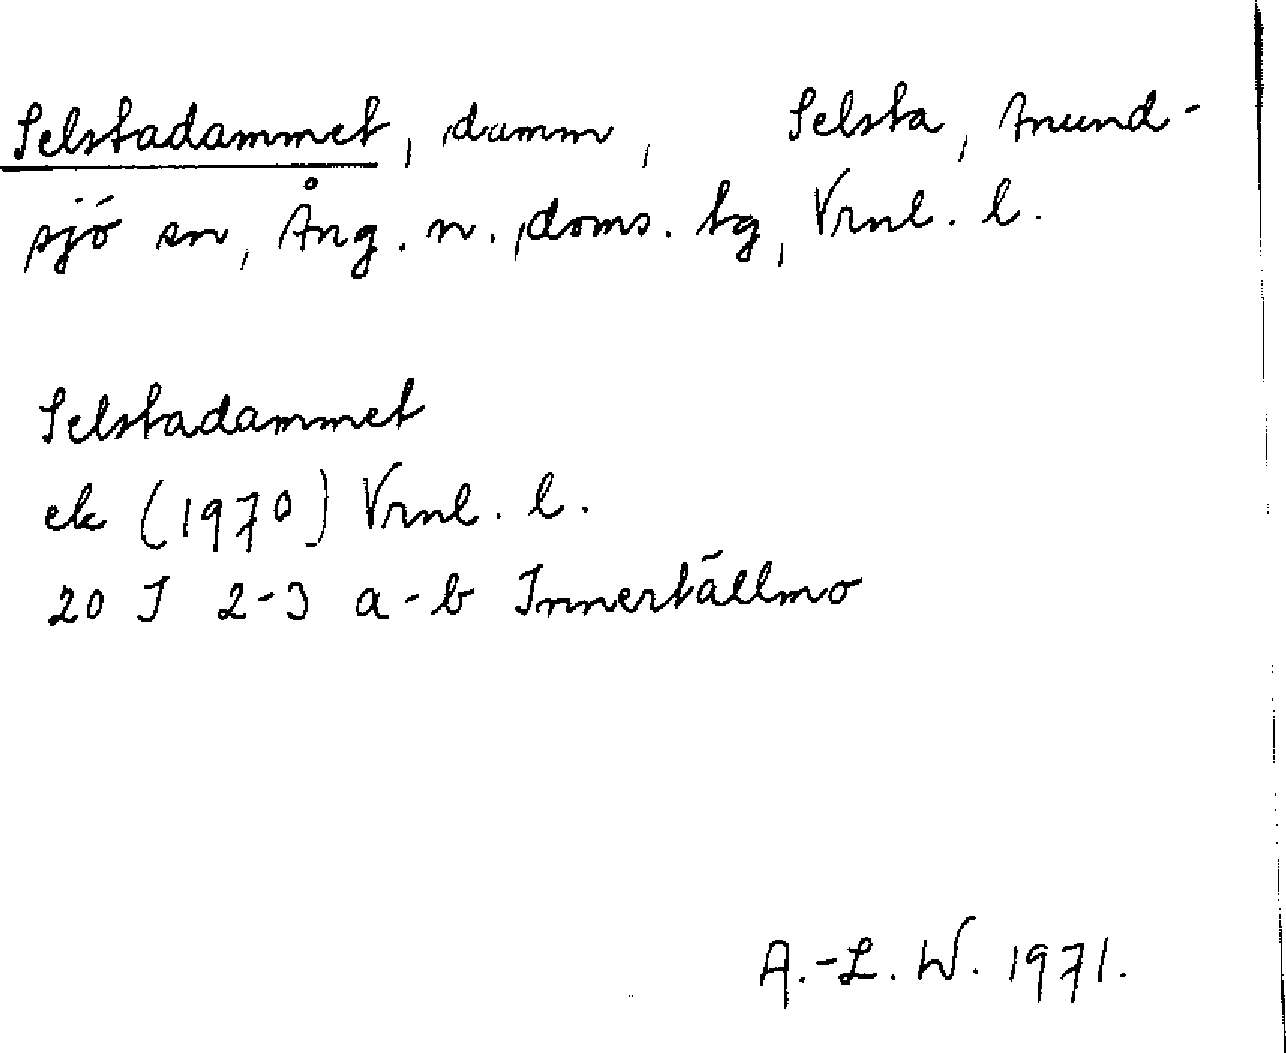 Selstadammet, damm, Selsta, Anund-
sjö sn, Ång. n. doms. tg, Vrnl. l.
Selstadammet
ek (1970) Vrnl. l.
20 I 2-3 a-b Innertällmo
A.-L. W. 1971.